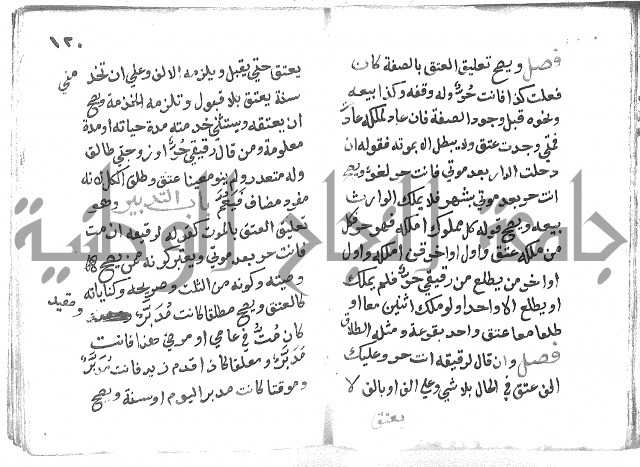 فصل ويصح تعليق العتق بالصفة كان
فعلت كذا فانت حرٌّ وله وقفه وكذا بيعه
ونحوه قبل وجود الصفة فان عاد لملكه عاد
فمتى وجدت عتق ولا يبطل الا بموته فقوله ان
دخلت الدار بعد موتي فانت حر لغو ويصح
انت حر بعد موتي بشهر فلا يملك الوارث
بيعه ويصح قوله كل مملوك املكه فهو حر فكل
من ملكه عتق واول او اخر قن املكه واول
او اخر من يطلع من رقيقي حرٌّ فلم يملك
او يطلع الا واحد او لو ملك اثنين معا او
طلعا معا عتق واحد بقرعة ومثله الطلاق
فصل وان قال لرقيقه انت حر وعليك
الف عتق في الحال بلا شي وعلي الف او بالف لا
يعتق
١٢٠
يعتق حتى يقبل ويلزمه الالف وعلي ان تخدمني
سنة يعتق بلا قبول وتلزمه الخدمة ويصح
ان يعتقه ويستثني خدمته مدة حياته او مدة
معلومة ومن قال رقيقي حرٌّ او زوجتي طالق
وله متعدد ولم ينو معينا عتق وطلق الكل لانه
مفرد مضاف فيعُمّ باب التدبير وهو
تعليق العتق بالموت كقوله لرقيقه ان مت
فانت حر بعد موتي ويعتبر كونه ممن يصح
وصيته وكونه من الثلث وصريحه وكناياته
كالعتق ويصح مطلقا كانت مُدَبَّرٌ ومقيد
كان مُتُّ في عامي او مرضي هذا فانت
مُدَبَّرٌ ومعلقا كاذا قدم زيد فانت مُدَبَّرٌ
وموقتا كانت مدبر اليوم او سنة ويصح
جامعة النجاح الوطنية